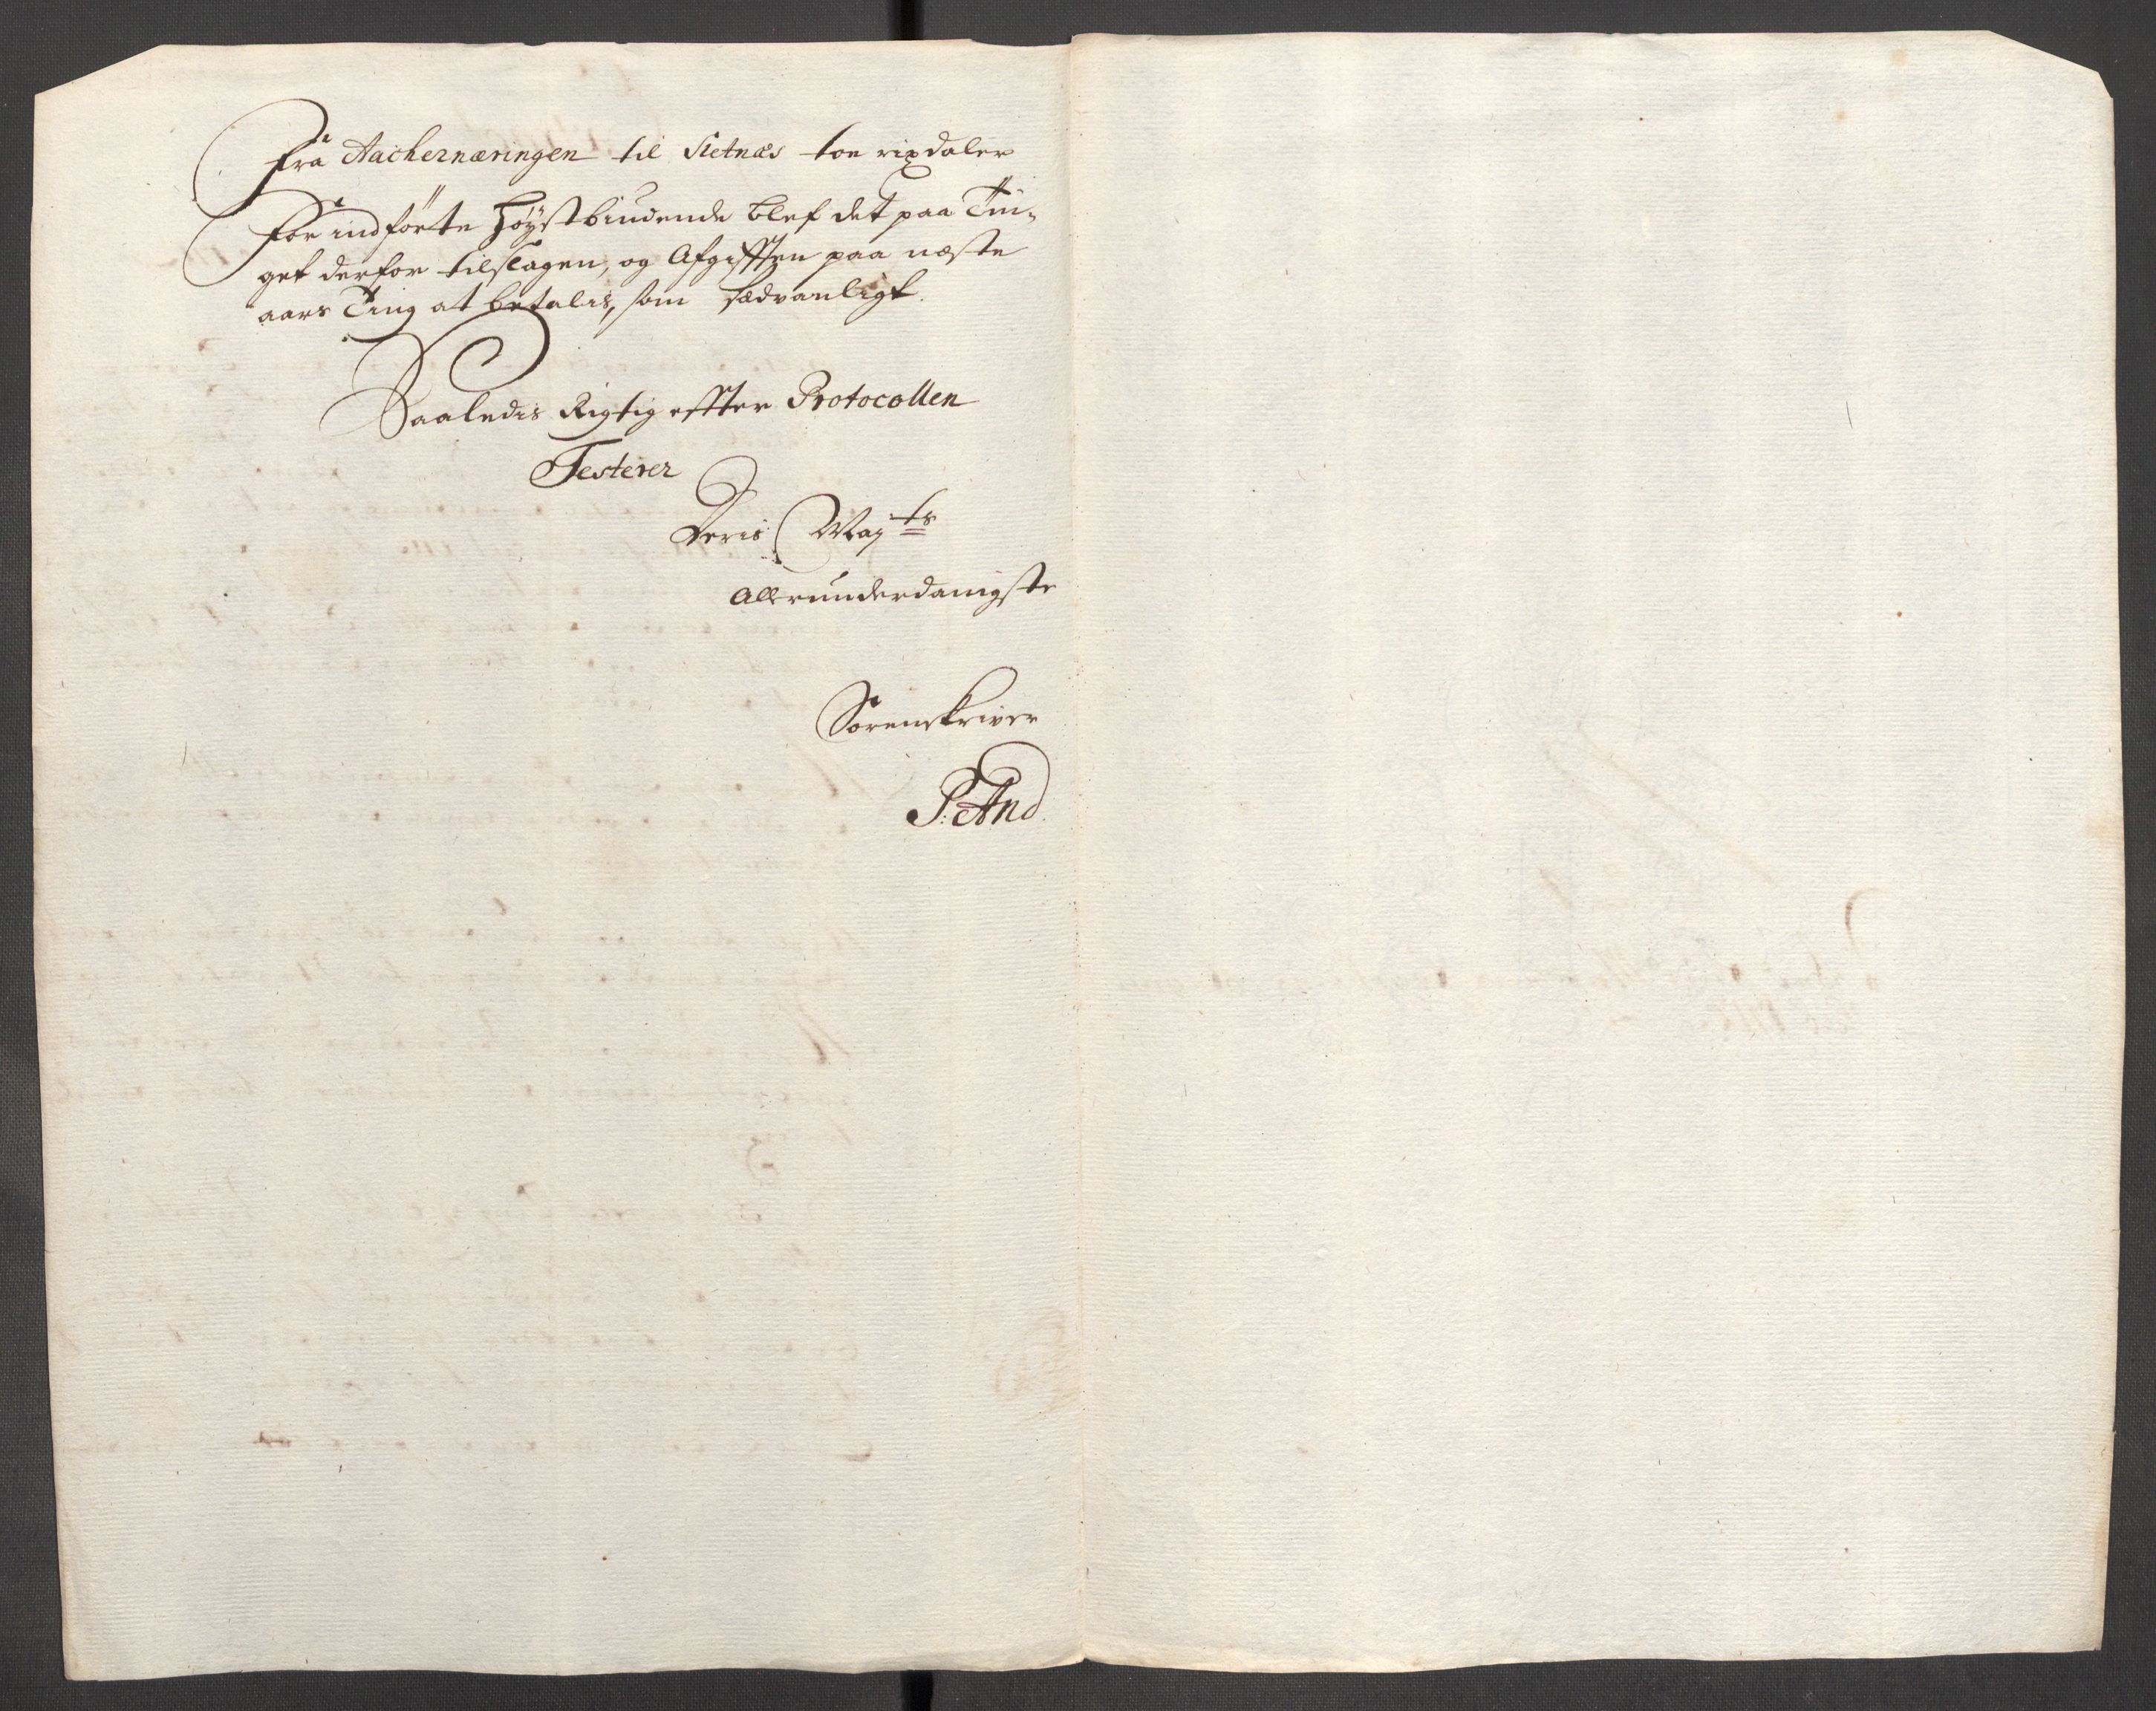 Fra Aachernæringen til Sletnæs toe rixdaler
For indförte Höystbiudende blef det paa Tin-
get derfor tilslagen, og Afgifften paa næste
aars Ting at betalis, som sædvanligt.
Saaledis Rigtig effter Protocollen
Testerer
Deris Mayts
Allerunderdanigste
Sorenskriver
P: And